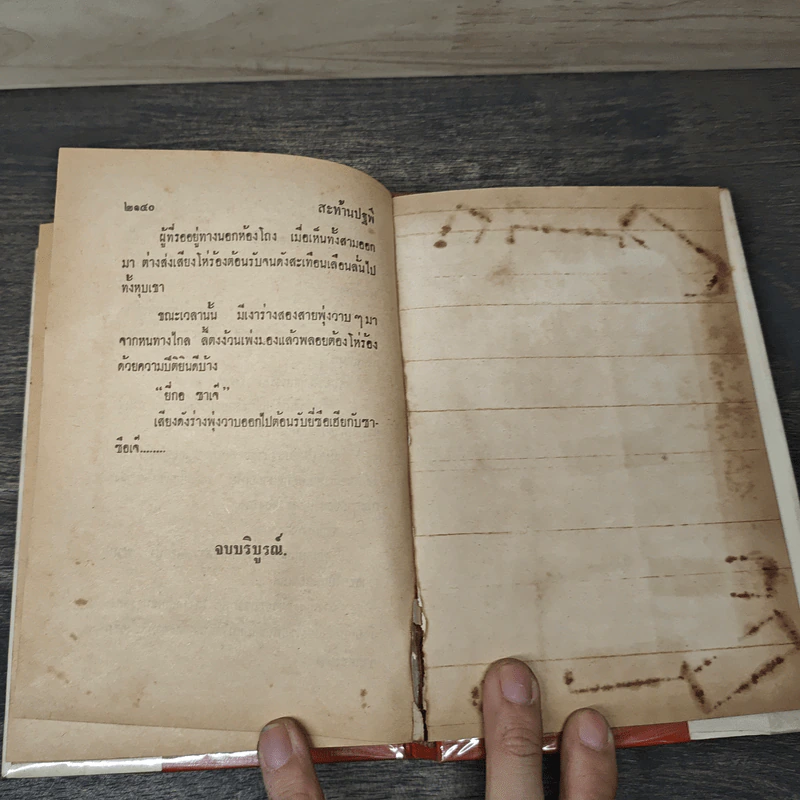 ๒๑๔๐ สะท้านปฐพี
ผู้ที่รออยู่ทางนอกห้องโถง เมื่อเห็นทั้งสามออก
มา ต่างส่งเสียงโห่ร้องต้อนรับจนดังสะเทือนเลือนลั่นไป
ทั้งหุบเขา
ขณะเวลานั้น มีเงาร่างสองสายพุ่งวาบ ๆ มา
จากหนทางไกล ลี้ตงง้วนเพ่งมองแล้วพลอยต้องโห่ร้อง
ด้วยความปีติยินดีบ้าง
“ยี่กอ ซาเจ๊”
เสียงดังร่างพุ่งวาบออกไปต้อนรับยี่ซือเฮียกับซา-
ซือเจ๊........
จบบริบูรณ์.